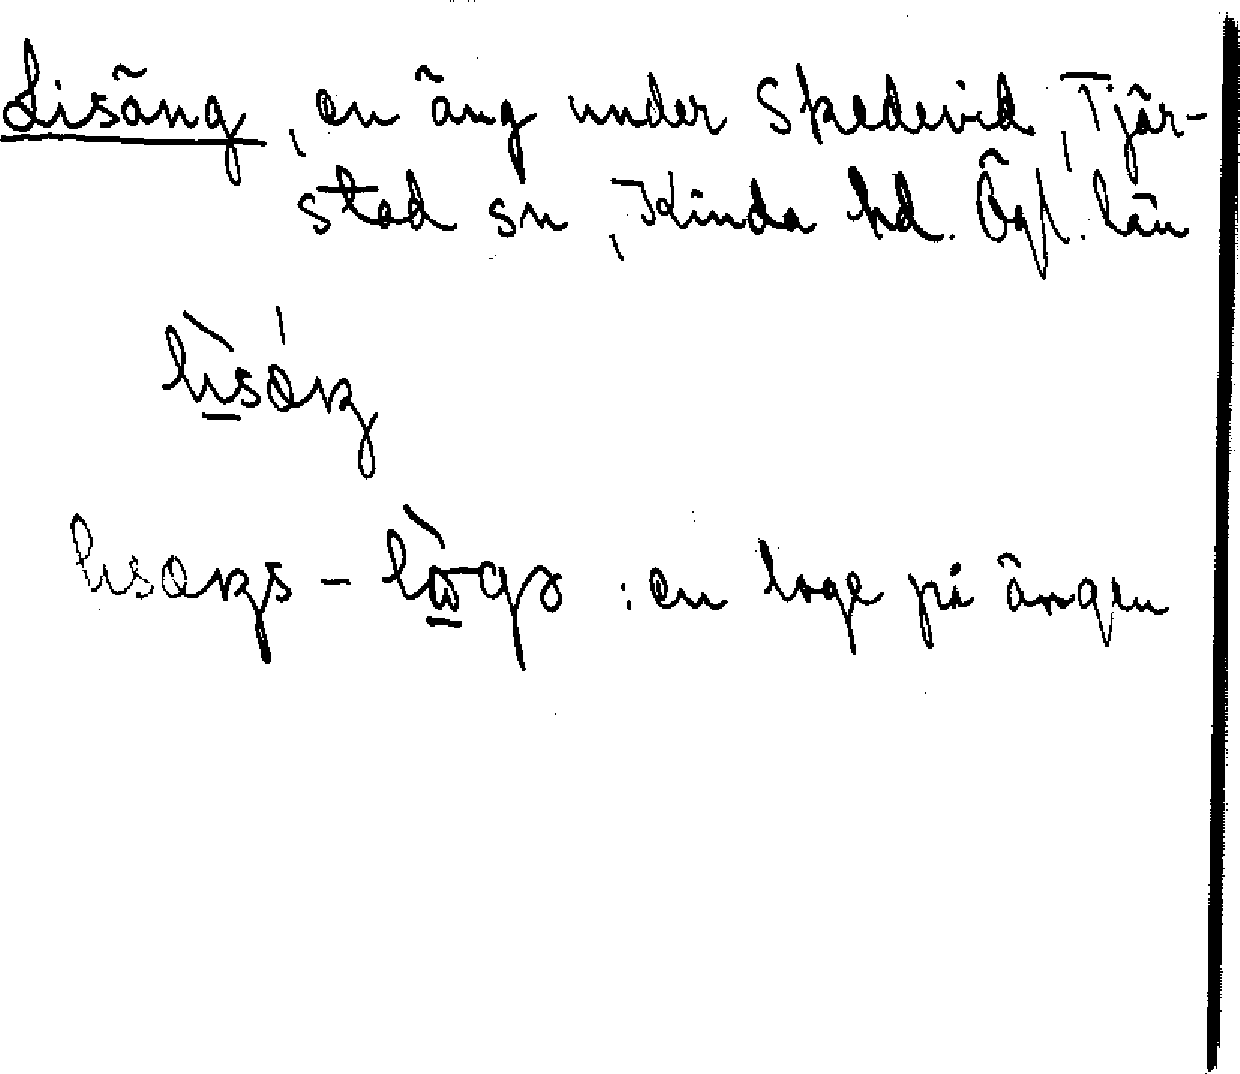 Lisäng, en äng under Skedevid, Tjär-
stad sn, Kinda hd. Ögl. län
: en loge på ängen